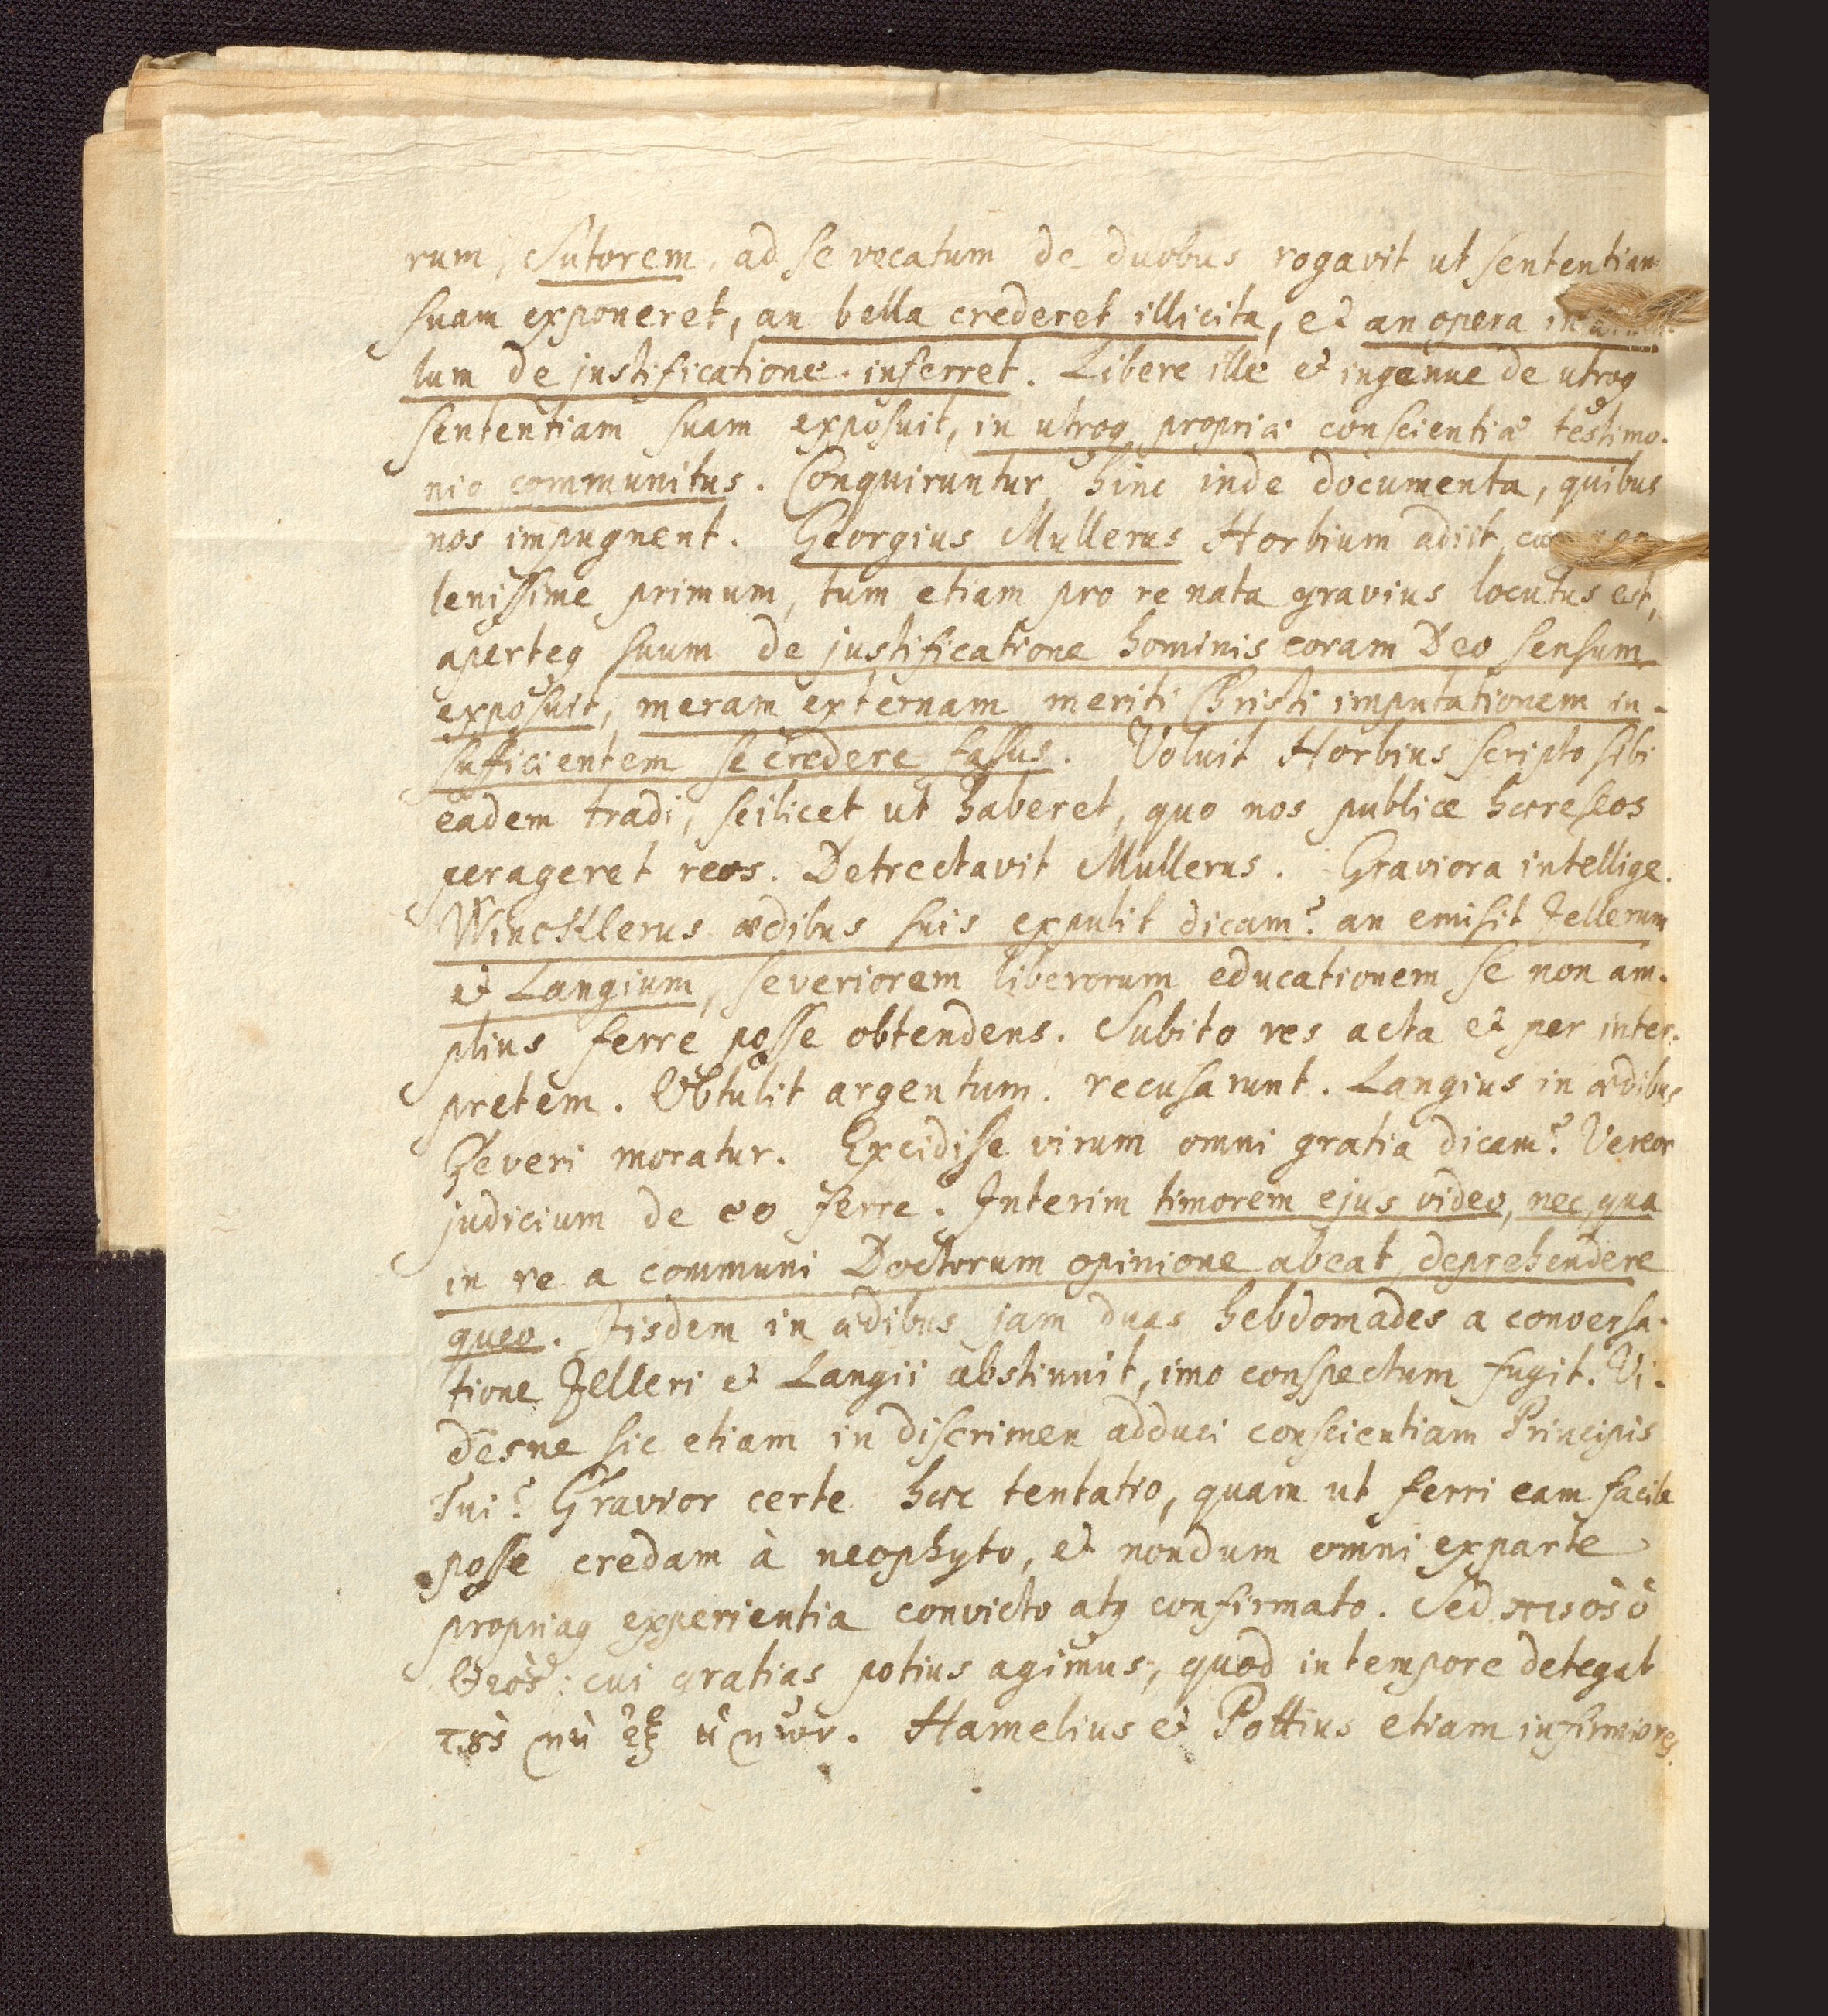 rum, Sutorem, ad se vocatum de duobus rogavit ut sententiam
suam exponeret, an bella crederet illicita, et an opera in
lum de justificatione inferret. Libere ille et ingenue de utroq
sententiam suam exposuit, in utroq propriæ conscientiæ testimo-
nio communitus. Conquiruntur hinc inde documenta, quibus
nos impugnent. Georgius Mullerus Horbium adiit,
lenissime primum, tum etiam pro re nata gravius locutus est,
aperteq suum de justificatione hominis coram Deo sensum
exposuit, meram externam meriti Christi imputationem in-
sufficientem se credere fassus. Voluit Horbius scripto sibi
eadem tradi, scilicet ut haberet, quo nos publice hæreseos
perageret reos. Detrectavit Mullerus. Graviora intellige.
Wincklerus ædibus suis expulit dicam? an emisit Zellerum
et Langium, severiorem liberorum educationem se non am-
plius ferre posse obtendens. Subito res acta et per inter-
pretem. Obtulit argentum. recusarunt. Langius in ædibus
Geveri moratur. Excidisse virum omni gratia dicam? Vereor
judicium de eo ferre. Interim timorem ejus video, nec, qua
in re a communi Doctorum opinione abeat, deprehendere
queo. Iisdem in ædibus jam duas hebdomades a conversa-
tione Zelleri et Langii abstinuit, imo conspectum fugit. Vi-
desne sic etiam in discrimen adduci conscientiam Principis
Tui? Gravior certe hæc tentatio, quam ut ferri eam facile
posse credam à neophyto, et nondum omni ex parte
propriaq experientia convicto atq confirmato. Sed πιςὸς ὁ
Θεὸς: cui gratias potius agimus, quod in tempore detegat
τȣ̀ς μὴ ἐξ ἡμῶν. Hamelius et Pottius etiam infirmiores.